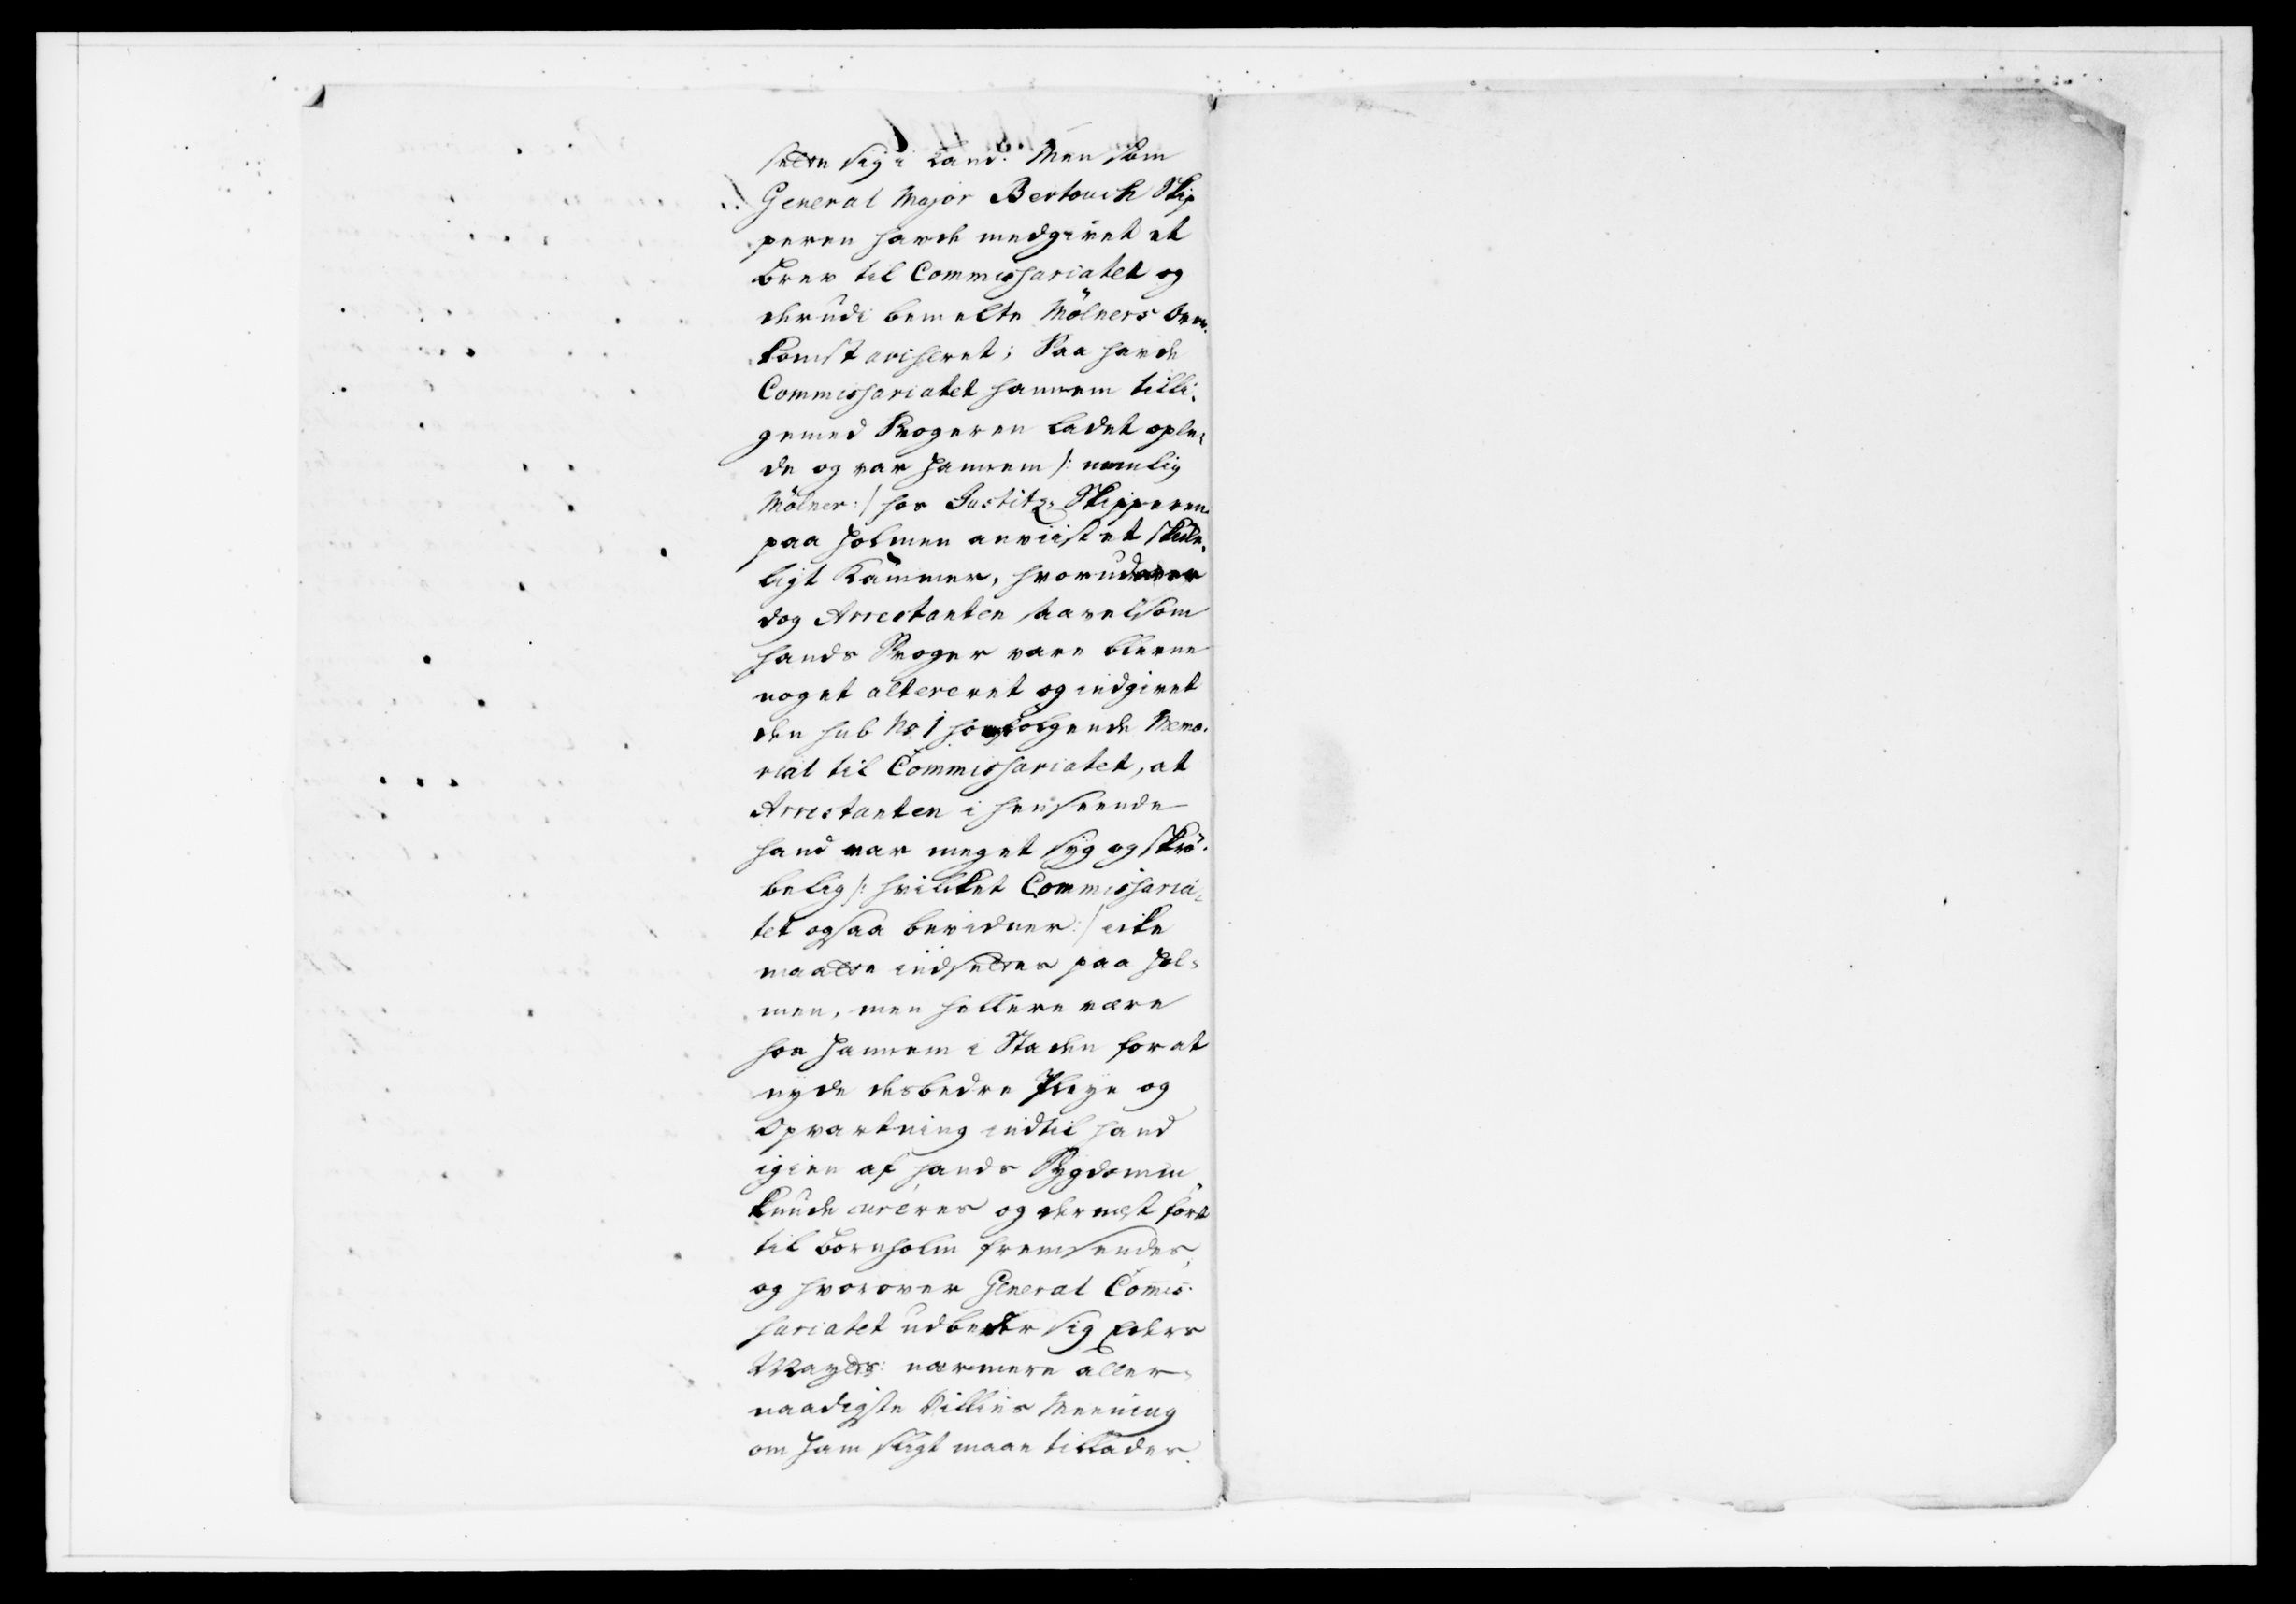 sætte sig i Land. Men som
General Major Bertouch Skip
peren havde medgivet et
Brev til Commissariatet og
derudi bemelte Mölners Over¬
komst aviseret; Saa havde
Commissariatet hannem tilli¬
gemed Svogeren ladet ople¬
de og var hannem /: nemlig
Mölner :/ hos Justitz Skipperen
paa Holmen anviist et skike¬
ligt Kammer, hvorudover
dog Arrestanten saavelsom
hands Svoger vare blevne
noget altereret og indgivet
den sub No 1 hosfölgende Memo¬
rial til Commissariatet, at
Arrestanten i henseende
hand var meget syg og skrö¬
belig /: hvilket Commissaria¬
tet ogsaa bevidner :/ icke
maatte indsettes paa Hol¬
men, men hellere være
hos hannem i Staden for at
nyde desbedre Pleye og
Opvartning indtil hand
igien af hands Sygdomme
kunde cureres og dernest först
til Bornholm fremsendes,
og hvorover General Commis¬
sariatet udbeder sig Eders
Mayts: nærmere aller¬
naadigste Villies Meening
om ham sligt maae tillades.